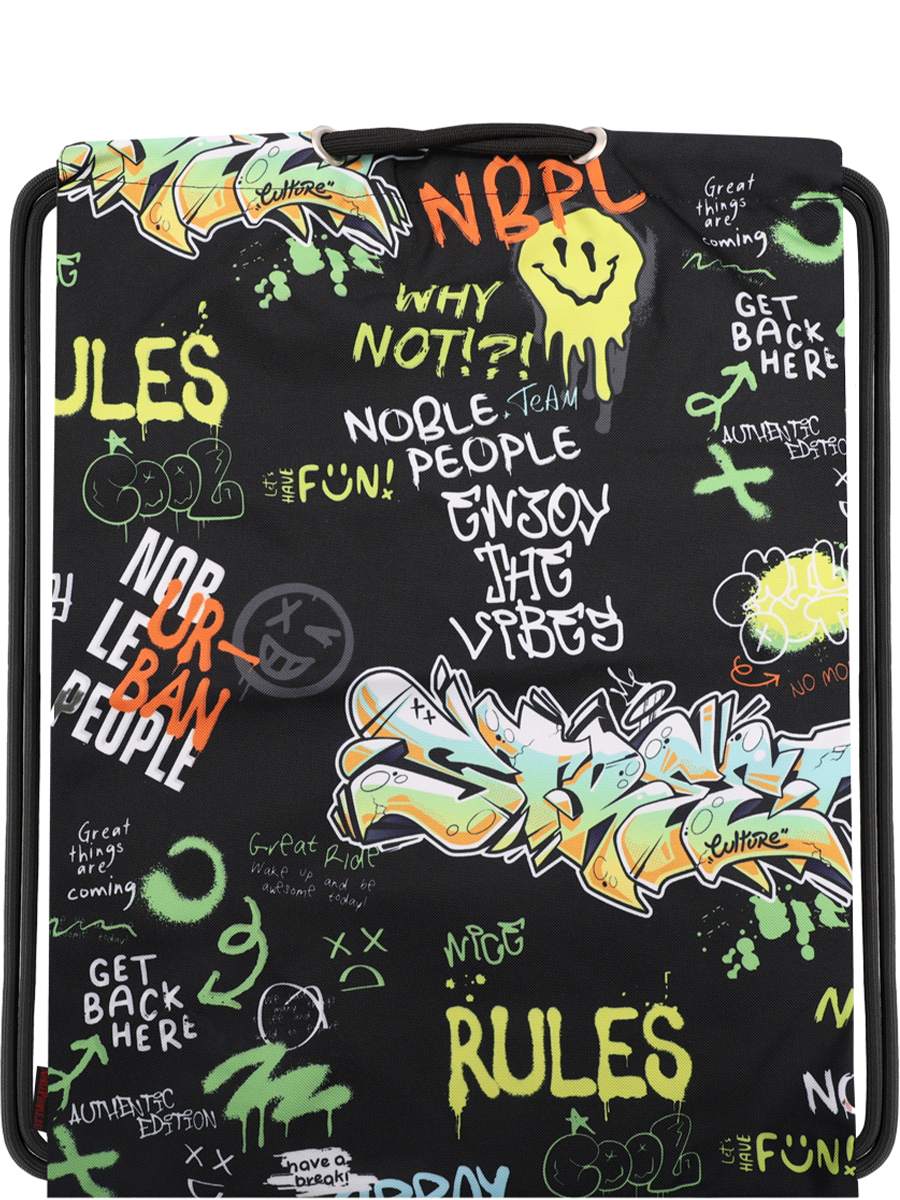 "Culture"
NOBPL
Great
things
are
coming
WHY
NOT!?!
GET
BACK
HERE
ULES
NOBLE TEAM
PEOPLE
AUTHENTIC
EDITIO
COOL
Let's
HAVE
FÜN!
ENJOY
THE
VIBES
NOB
LE
PEOPLE
UR-
BAN
NO MO
STREET
"Culture"
Great
things
are
coming
Great Ride
Wake up and be
awesome today!
NICE
GET
BACK
HERE
RULES
AUTHENTIC
EDITION
NO
Let's
HAVE
FÜN!
have a
break!
COOL